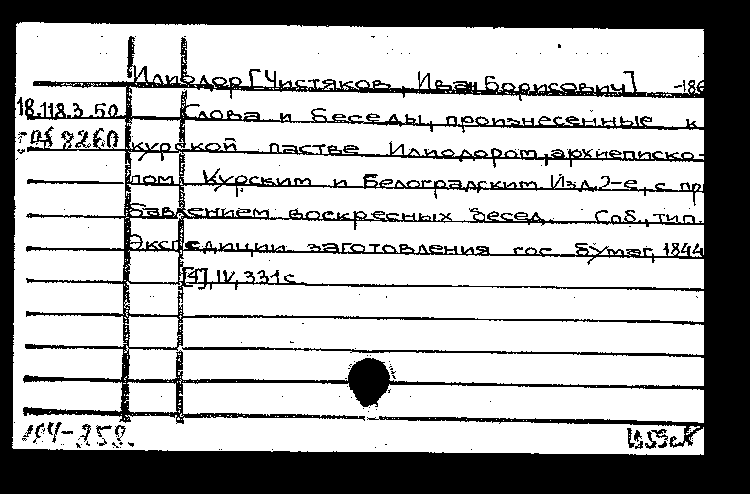 Илиодор [Чистяков, Иван Борисович] -186
18.118.3.50 Слова и беседы, произнесенные к
8260 курской пастве Илиодором, архиеписко-
пом Курским и Белоградским. Изд. 2-е, с при
бавлением воскресных бесед. Спб., тип.
Экспедиции заготовления гос бумаг, 1844
[4], IV, 331 с.
194-258.